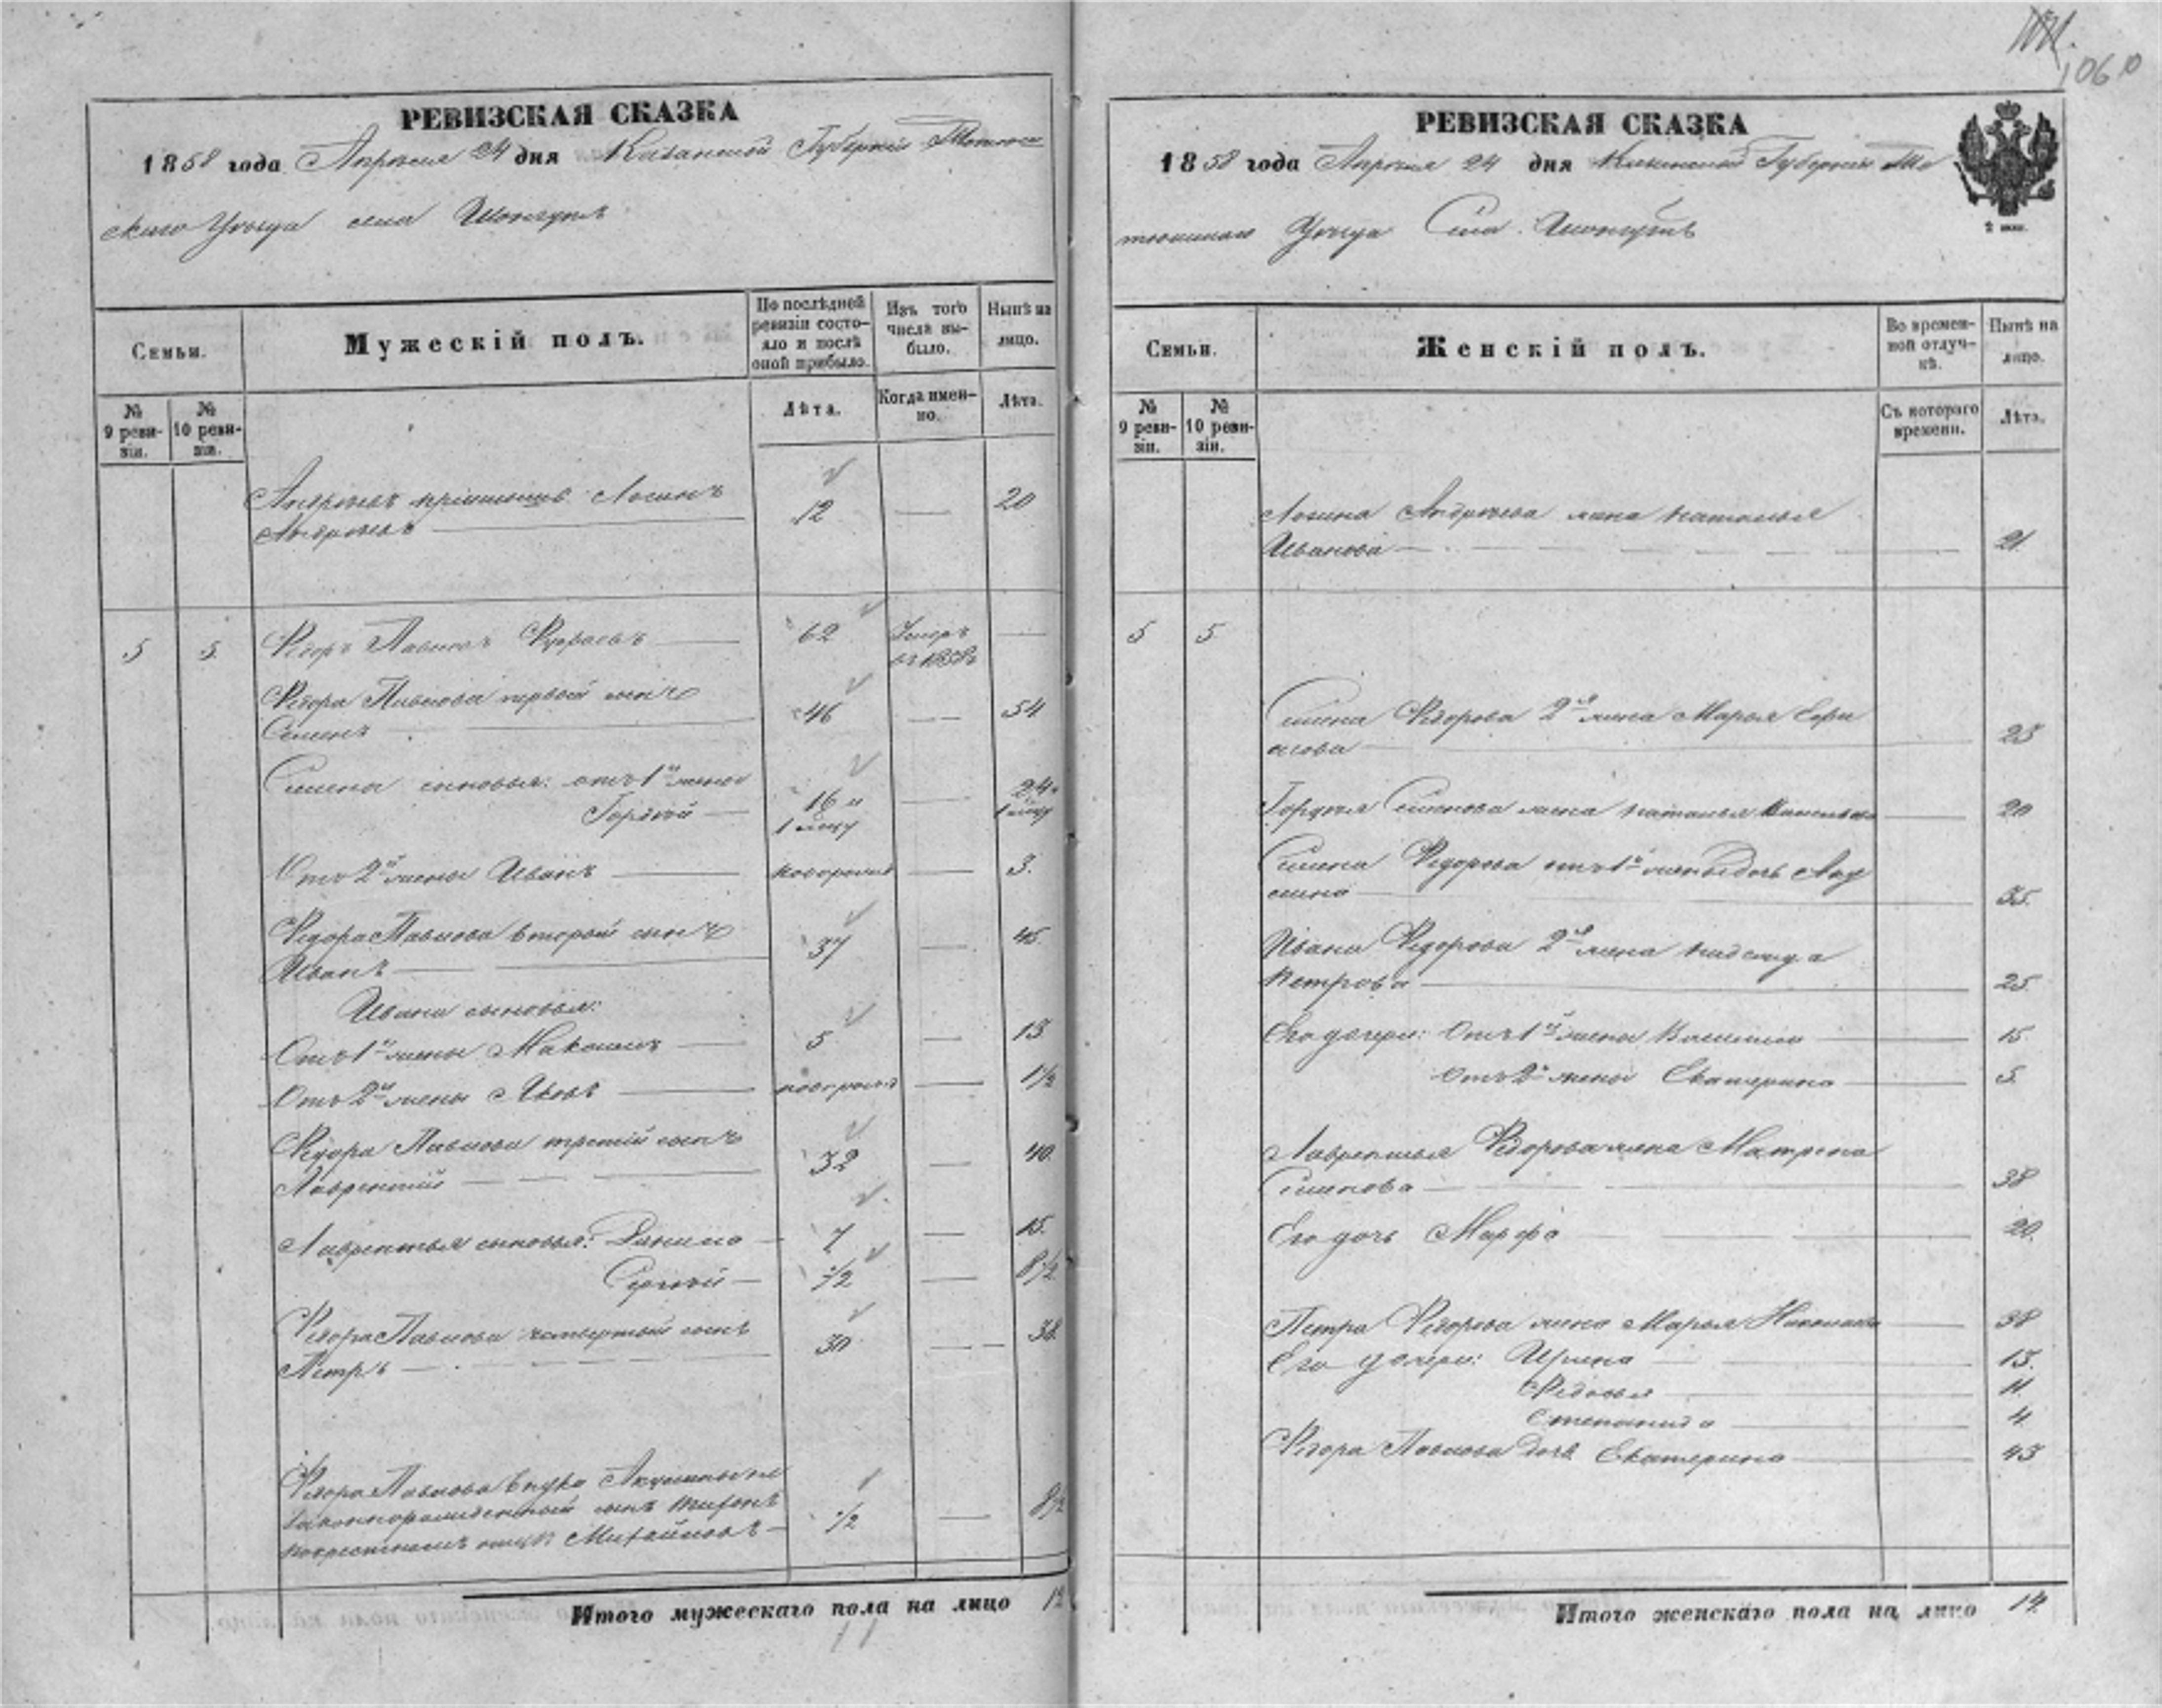 1060
РЕВИЗСКАЯ СКАЗКА
1858 года Апреля 24 дня Казанской Губернии
скаго Уезда села
Семьи.
Мужескій полъ.
По послѣдней ревизіи состояло и послѣ оной прибыло.
Изъ того числа выбыло.
Нынѣ на лицо.
№ 9 ревизіи.
№ 10 ревизіи.
Лѣта.
Когда именно.
Лѣта.
Андреевъ
Андреевъ — 12 — 20
5 5 Федоръ Павловъ — 62 Умеръ —
Федора Павлова первый сынъ
Семенъ — 46 — 54
Семена сыновья: отъ 1й жены
Гордей — 16 и 1 мцу — 24 и 1 мцу
Отъ 2й жены Иванъ — новорожд — 3.
Федора Павлова второй сынъ
Иванъ — 37 — 45
Ивана сыновья:
Отъ 1й жены Максимъ — 5 — 13
Отъ 2й жены Яковъ — новорожд — 1½
Федора Павлова третій сынъ
Лаврентій — 32 — 40
Лаврентья сыновья: Данило — 7 — 15.
Сергей — ½ — 8½
Федора Павлова четвертый сынъ
Петръ — 30 — 38
Федора Павлова внука Акулины не
законнорожденный сынъ
по крестномъ отцѣ Михайловъ — ½ — 8½
Итого мужескаго пола на лицо 12
11
РЕВИЗСКАЯ СКАЗКА
1858 года Апреля 24 дня Казанской Губернии
Уезда Села
2 коп.
Семьи.
Женскій полъ.
Во временной отлучкѣ.
Нынѣ на лицо.
№ 9 ревизіи.
№ 10 ревизіи.
Съ котораго времени.
Лѣта.
Андреева жена Наталья
Иванова — 21.
5 5
Семена Федорова 2я жена Марья
— 23
Гордея Семенова жена Наталья — 20
Семена Федорова отъ 1й жены дочь
— 35.
Ивана Федорова 2я жена Надежда
Петрова — 25
Его дочери: Отъ 1й жены — 15
Отъ 2й жены Екатерина — 5.
Лаврентья Федорова жена Матрена
Семенова — 38
Его дочь Марфа — 20
Петра Федорова жена Марья — 38
Его дочери: Ирина — 13.
Федосья — 11.
Степанида — 4
Федора Павлова дочь Екатерина — 43
Итого женскаго пола на лицо 14